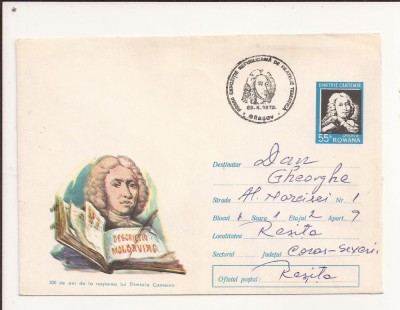 PRIMA EXPOZIȚIE REPUBLICANĂ DE FILATELIE TEMATICĂ
BRAȘOV
DIMITRIE CANTEMIR
55 B
POSTA ROMANA
Destinatar Dan
Gheorghe
Strada Al. Narcisei Nr. 1
Blocul 1 Scara 1 Etajul 2 Apart. 9
Localitatea Reșița
Sectorul Județul Caraș-Severin
Oficiul poștal: Reșița
DESCRIPTIO
MOLDAVIAE
300 de ani de la nașterea lui Dimitrie Cantemir